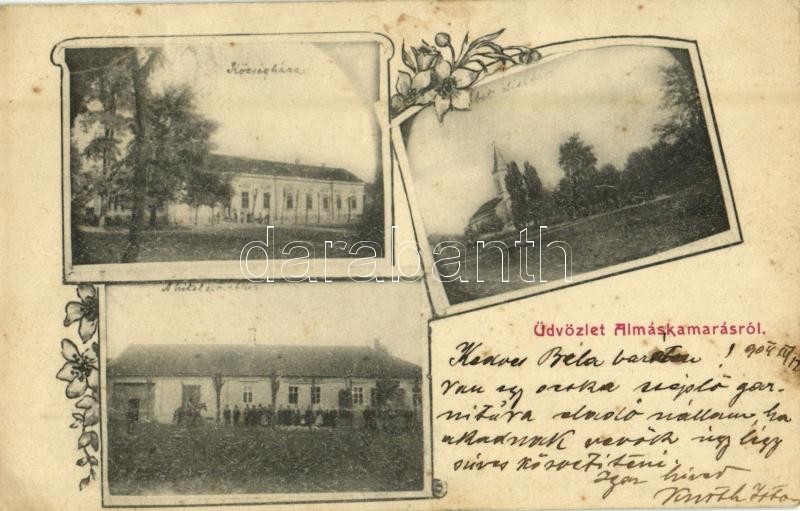 Községháza
darabanth
Üdvözlet Almáskamarásról.
Kedves Béla barátom!
Van egy ócska cséplő gar-
nitúra eladó nállam, ha
akadnak vevők úgy légy
szíves közvetíteni.
Igaz híved